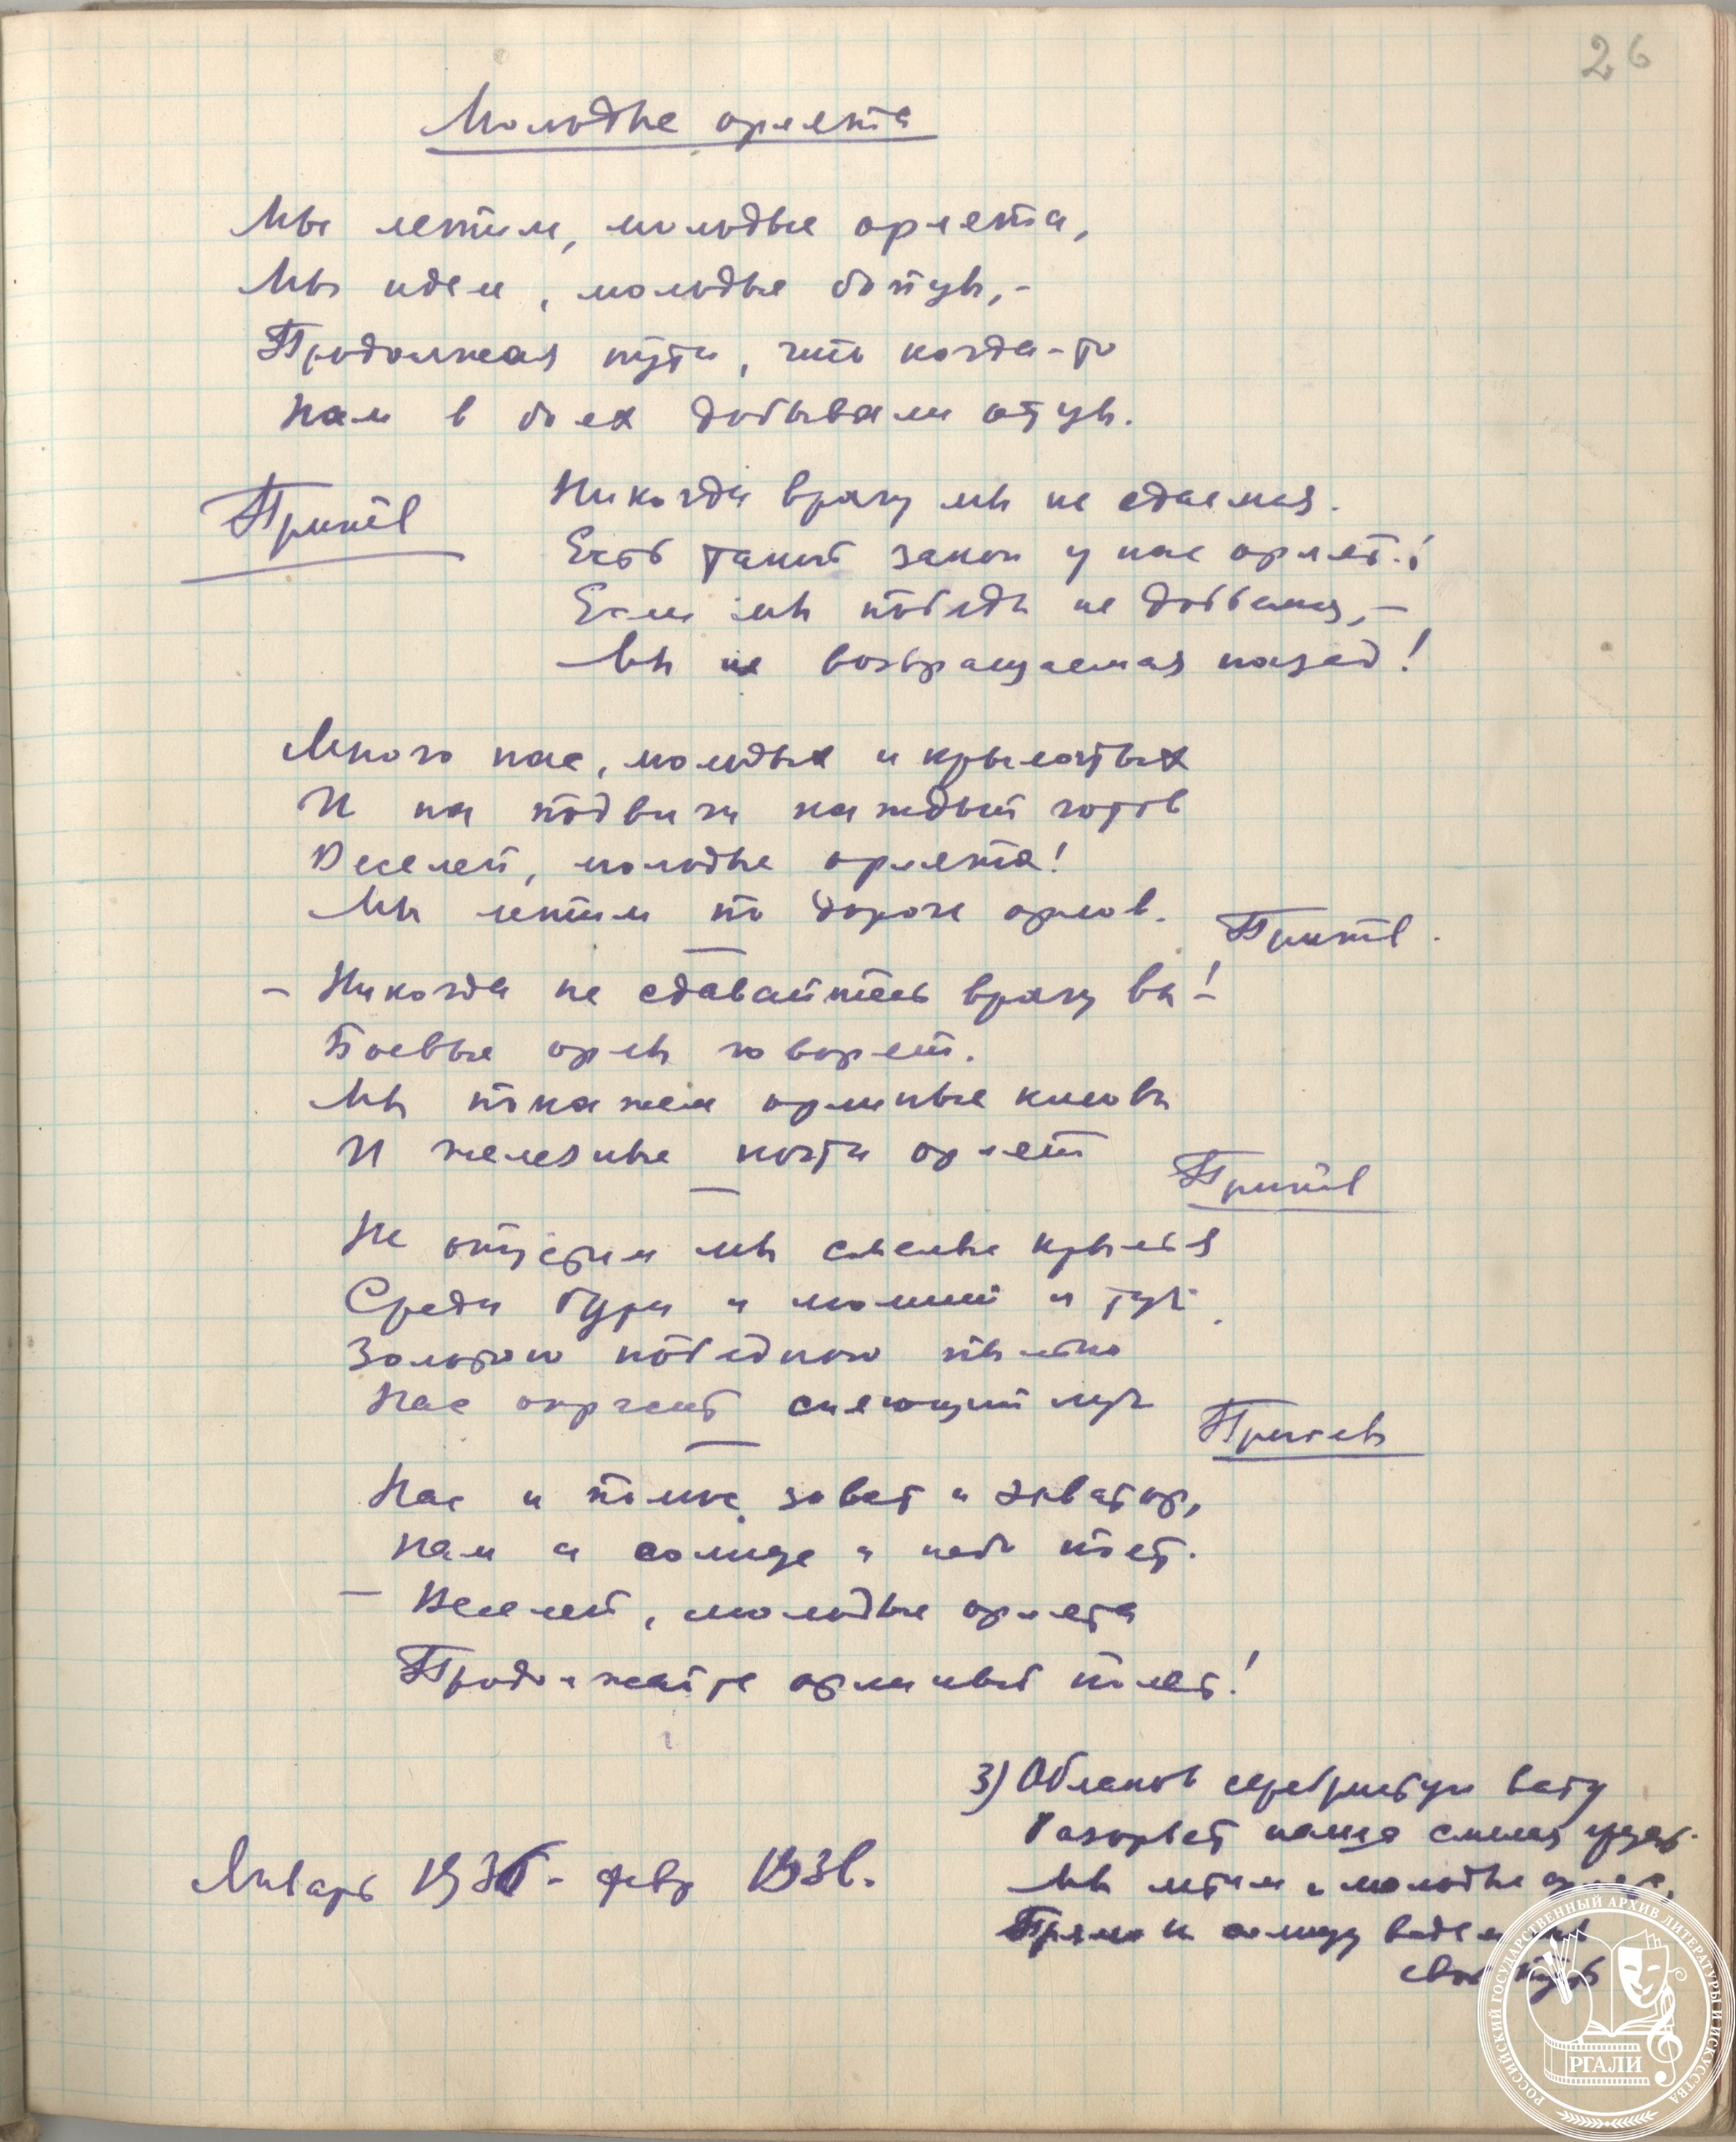 26
Молодые орлята
Мы летим, молодые орлята,
Мы идем, молодые бойцы,-
Продолжая пути, что когда-то
Нам в боях добывали отцы.
Припев
Никогда врагу мы не сдаемся.
Есть такой закон у нас орлят:
Если мы победы не добьемся,-
Мы не возвращаемся назад!
Много нас, молодых и крылатых
И на подвиги каждый готов
Веселей, молодые орлята!
Мы летим по дороге орлов.
Припев.
- Никогда не сдавайтесь врагу вы! -
Боевые орлы говорят.
Мы покажем орлиные клювы
И железные когти орлят
Припев
Не опустим мы смелые крылья
Среди бури и молний и туч.
Золотою победною пылью
Нас окрасит сияющий луч
Припев
Нас и полюс зовет и экватор,
Нам и солнце и небо поет.
- Веселей, молодые орлята
Продолжайте орлиный полет!
3) Облаков серебристую вату
Разорвет наша смелая грудь.
Мы летим молодые
Прямо к солнцу
свой путь
Январь 1936 - февр 1936.
РОССИЙСКИЙ ГОСУДАРСТВЕННЫЙ АРХИВ ЛИТЕРАТУРЫ И ИСКУССТВА
РГАЛИ